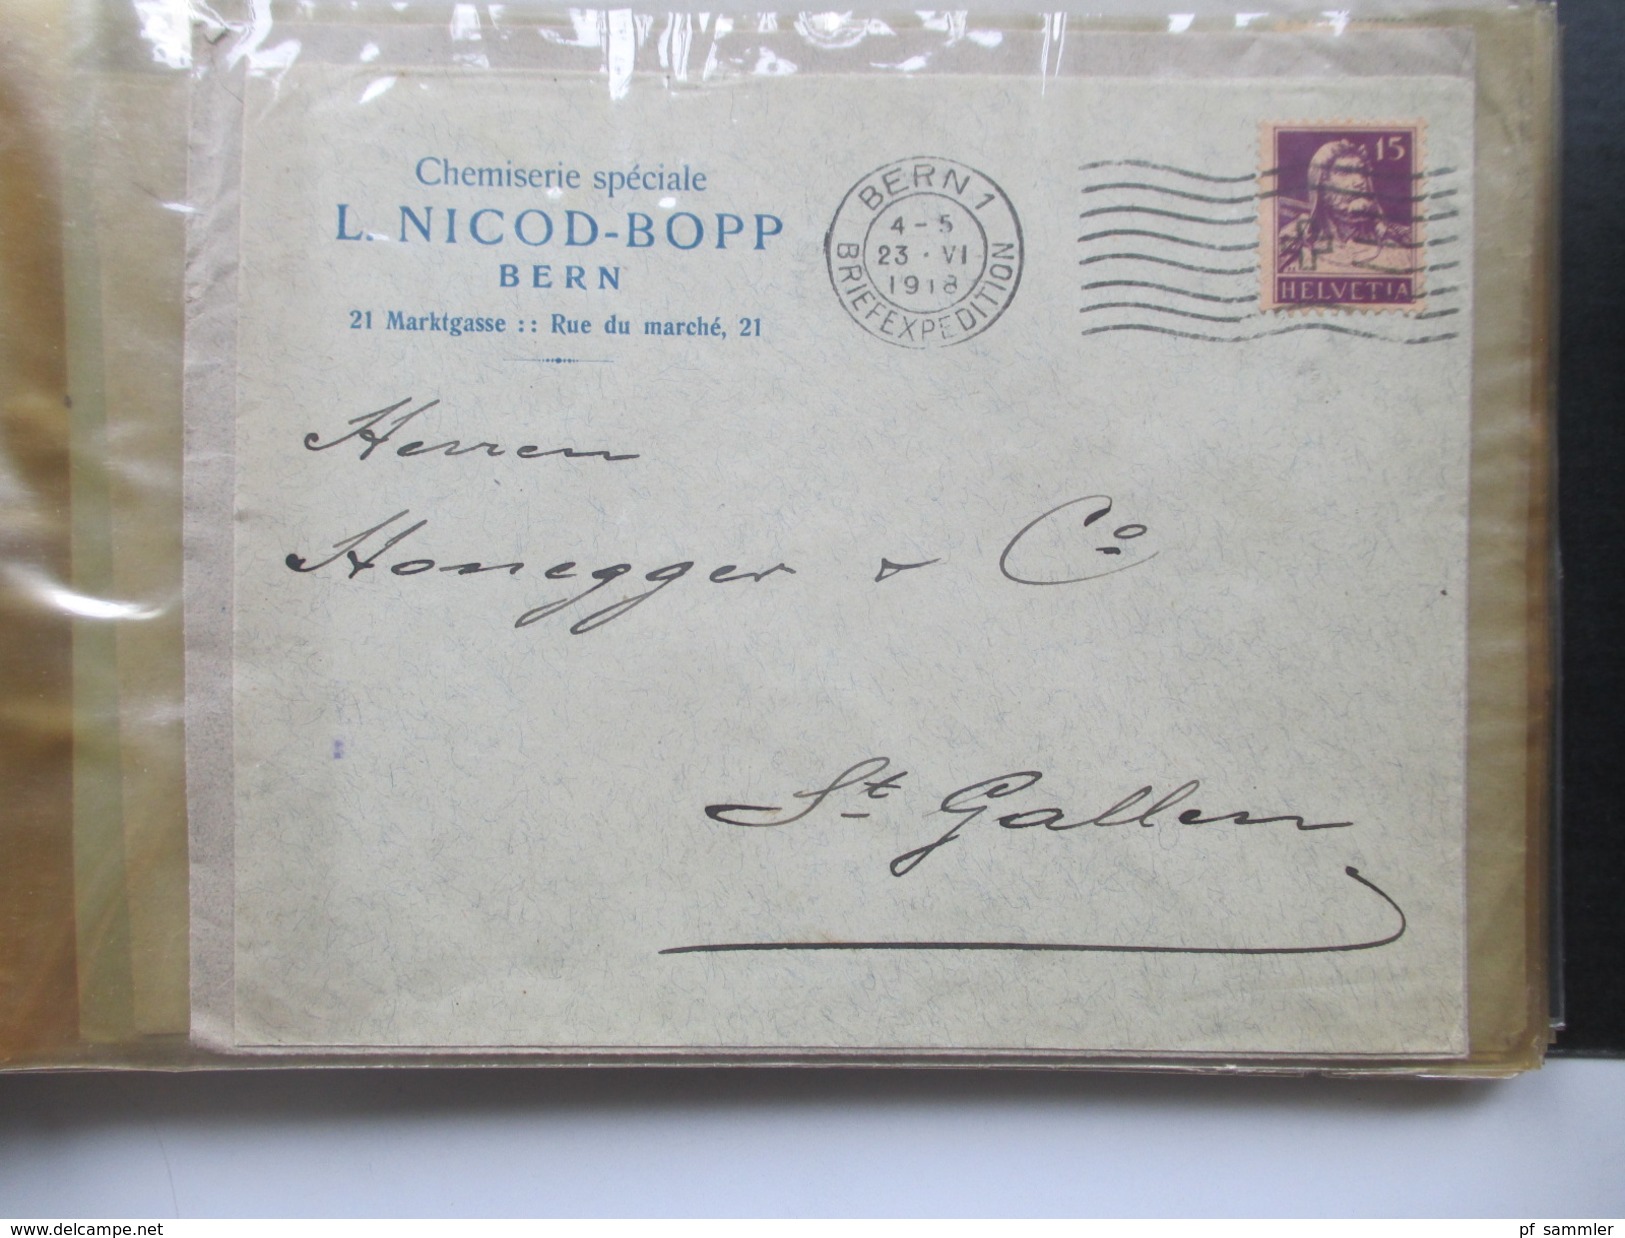 Chemiserie spéciale
L. NICOD-BOPP
BERN
21 Marktgasse :: Rue du marché, 21
BERN 1
4-5
23 · VI
1918
BRIEFEXPEDITION
15
HELVETIA
Herren
Honegger & Co
St Gallen
www.delcampe.net
pf_sammler